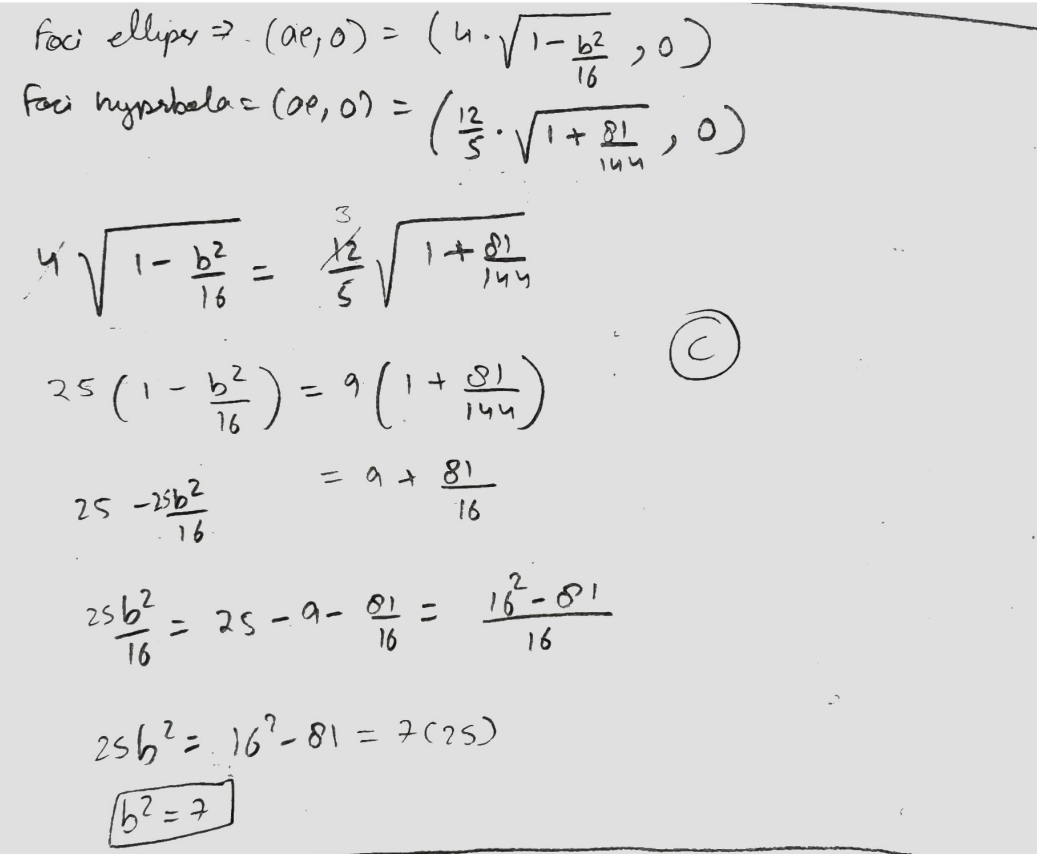 foci ellipse ⇒ (ae, 0) = (4·√(1 - b²/16), 0)
foci hyperbola = (ae, 0) = (12/5 · √(1 + 81/144), 0)
3
4 √(1 - b²/16) = 12/5 √(1 + 81/144)
C
25 (1 - b²/16) = 9 (1 + 81/144)
25 - 25b²/16 = 9 + 81/16
25b²/16 = 25 - 9 - 81/16 = (16² - 81)/16
25b² = 16² - 81 = 7(25)
b² = 7